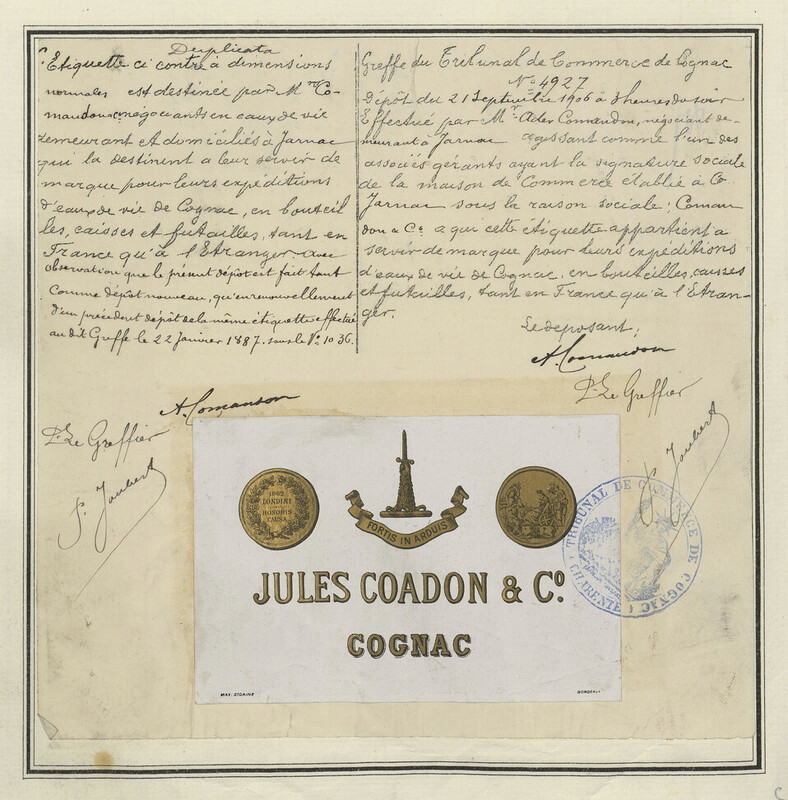 Duplicata
Etiquette ci contre à dimensions
normales est destinée par Mrs Co-
mandon & Co négociants en eaux de vie
demeurant et domiciliés à Jarnac
qui la destinent a leur servir de
marque pour leurs expéditions
d'eaux de vie de Cognac, en bouteil
les, caisses et futailles, tant en
France qu'à l'Etranger. avec
observation que le présent dépôt est fait tant
comme dépôt nouveau, qu'en renouvellement
d'un précédent dépôt de la même étiquette effectué
au dit Greffe le 22 Janvier 1887. sous le No 1036.
A. Comandon
Pr Le Greffier
P. Joubert
Greffe du Tribunal de Commerce de Cognac
No 4927
Dépôt du 21 Septembre 1906 à 3 heures du soir
Effectué par Mr Ader Comandon, négociant de-
meurant à Jarnac agissant comme l'un des
associés gérants ayant la signature sociale
de la maison de Commerce établie à
Jarnac sous la raison sociale; Coman
don & Co. a qui cette étiquette appartient a
servir de marque pour leurs expéditions
d'eaux de vie de Cognac, en bouteilles, caisses
et futailles, tant en France qu'à l'Etran-
ger.
Le déposant;
A. Comandon
Pr Le Greffier
P. Joubert
1862
LONDINI
HONORIS
CAUSA
FORTIS IN ARDUIS
JULES COADON & Co
COGNAC
MAX. SIDAINE
BORDEAUX
TRIBUNAL DE COMMERCE DE COGNAC
CHARENTE